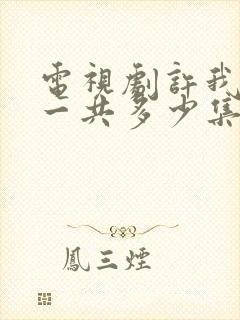 電視劇許我
一共多少集
鳳三煙